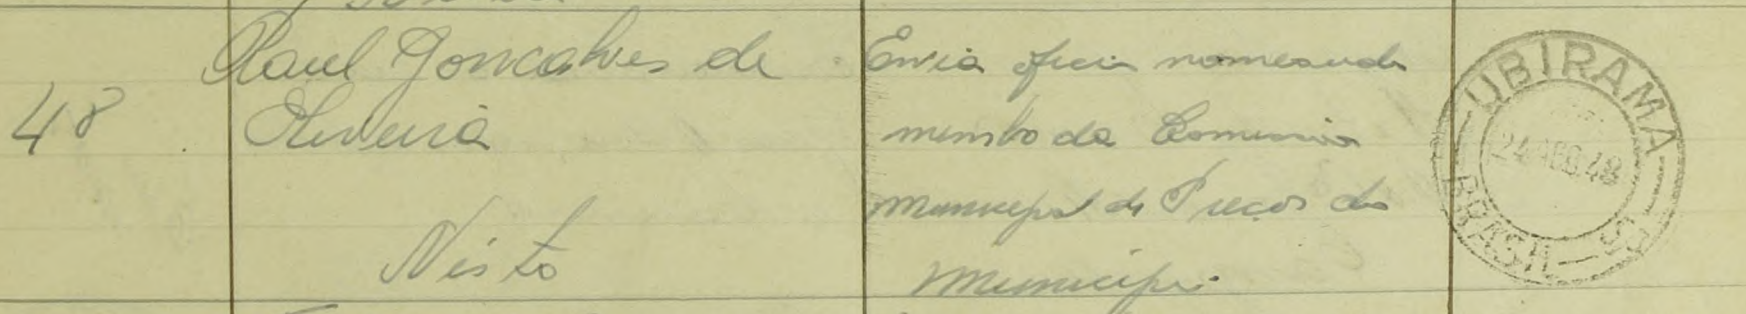 48
Raul Goncalves de
Oliveira
Nesta
Envia oficio nomeando
membro da Comissão
Municipal de Preços do
Municipio.
UBIRAMA
24 AGO 48
BRASIL — SP